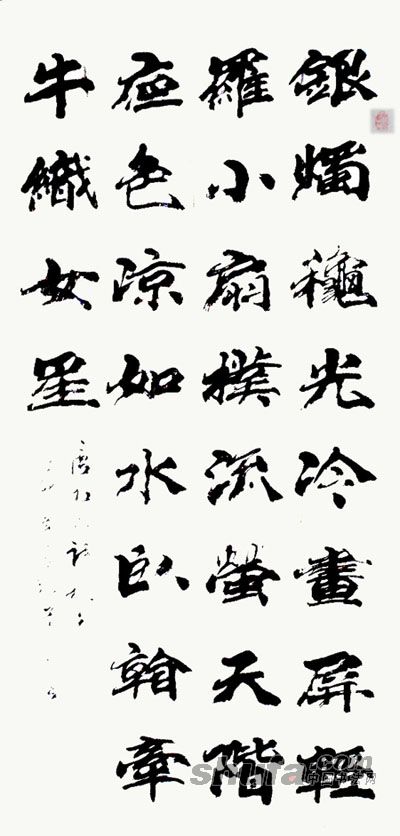 銀燭龝光冷畫屏輕
羅小扇撲流螢天階
夜色涼如水臥看牽
牛織女星
唐杜牧詩
shufa.com
中国书法网